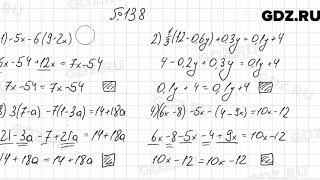 GDZ.RU
№138
1) -5x-6(9-2x)
-5x-54+12x=7x-54
7x-54=7x-54
2) 1/3(12-0,6y)+0,3y=0,1y+4
4-0,2y+0,3y=0,1y+4
0,1y+4=0,1y+4
3) 3(7-a)-7(1-3a)=14+18a
21-3a-7+21a=14+18a
14+18a=14+18a
4) (6x-8)-5x-(4-9x)=10x-12
6x-8-5x-4+9x=10x-12
10x-12=10x-12
GDZ.RU